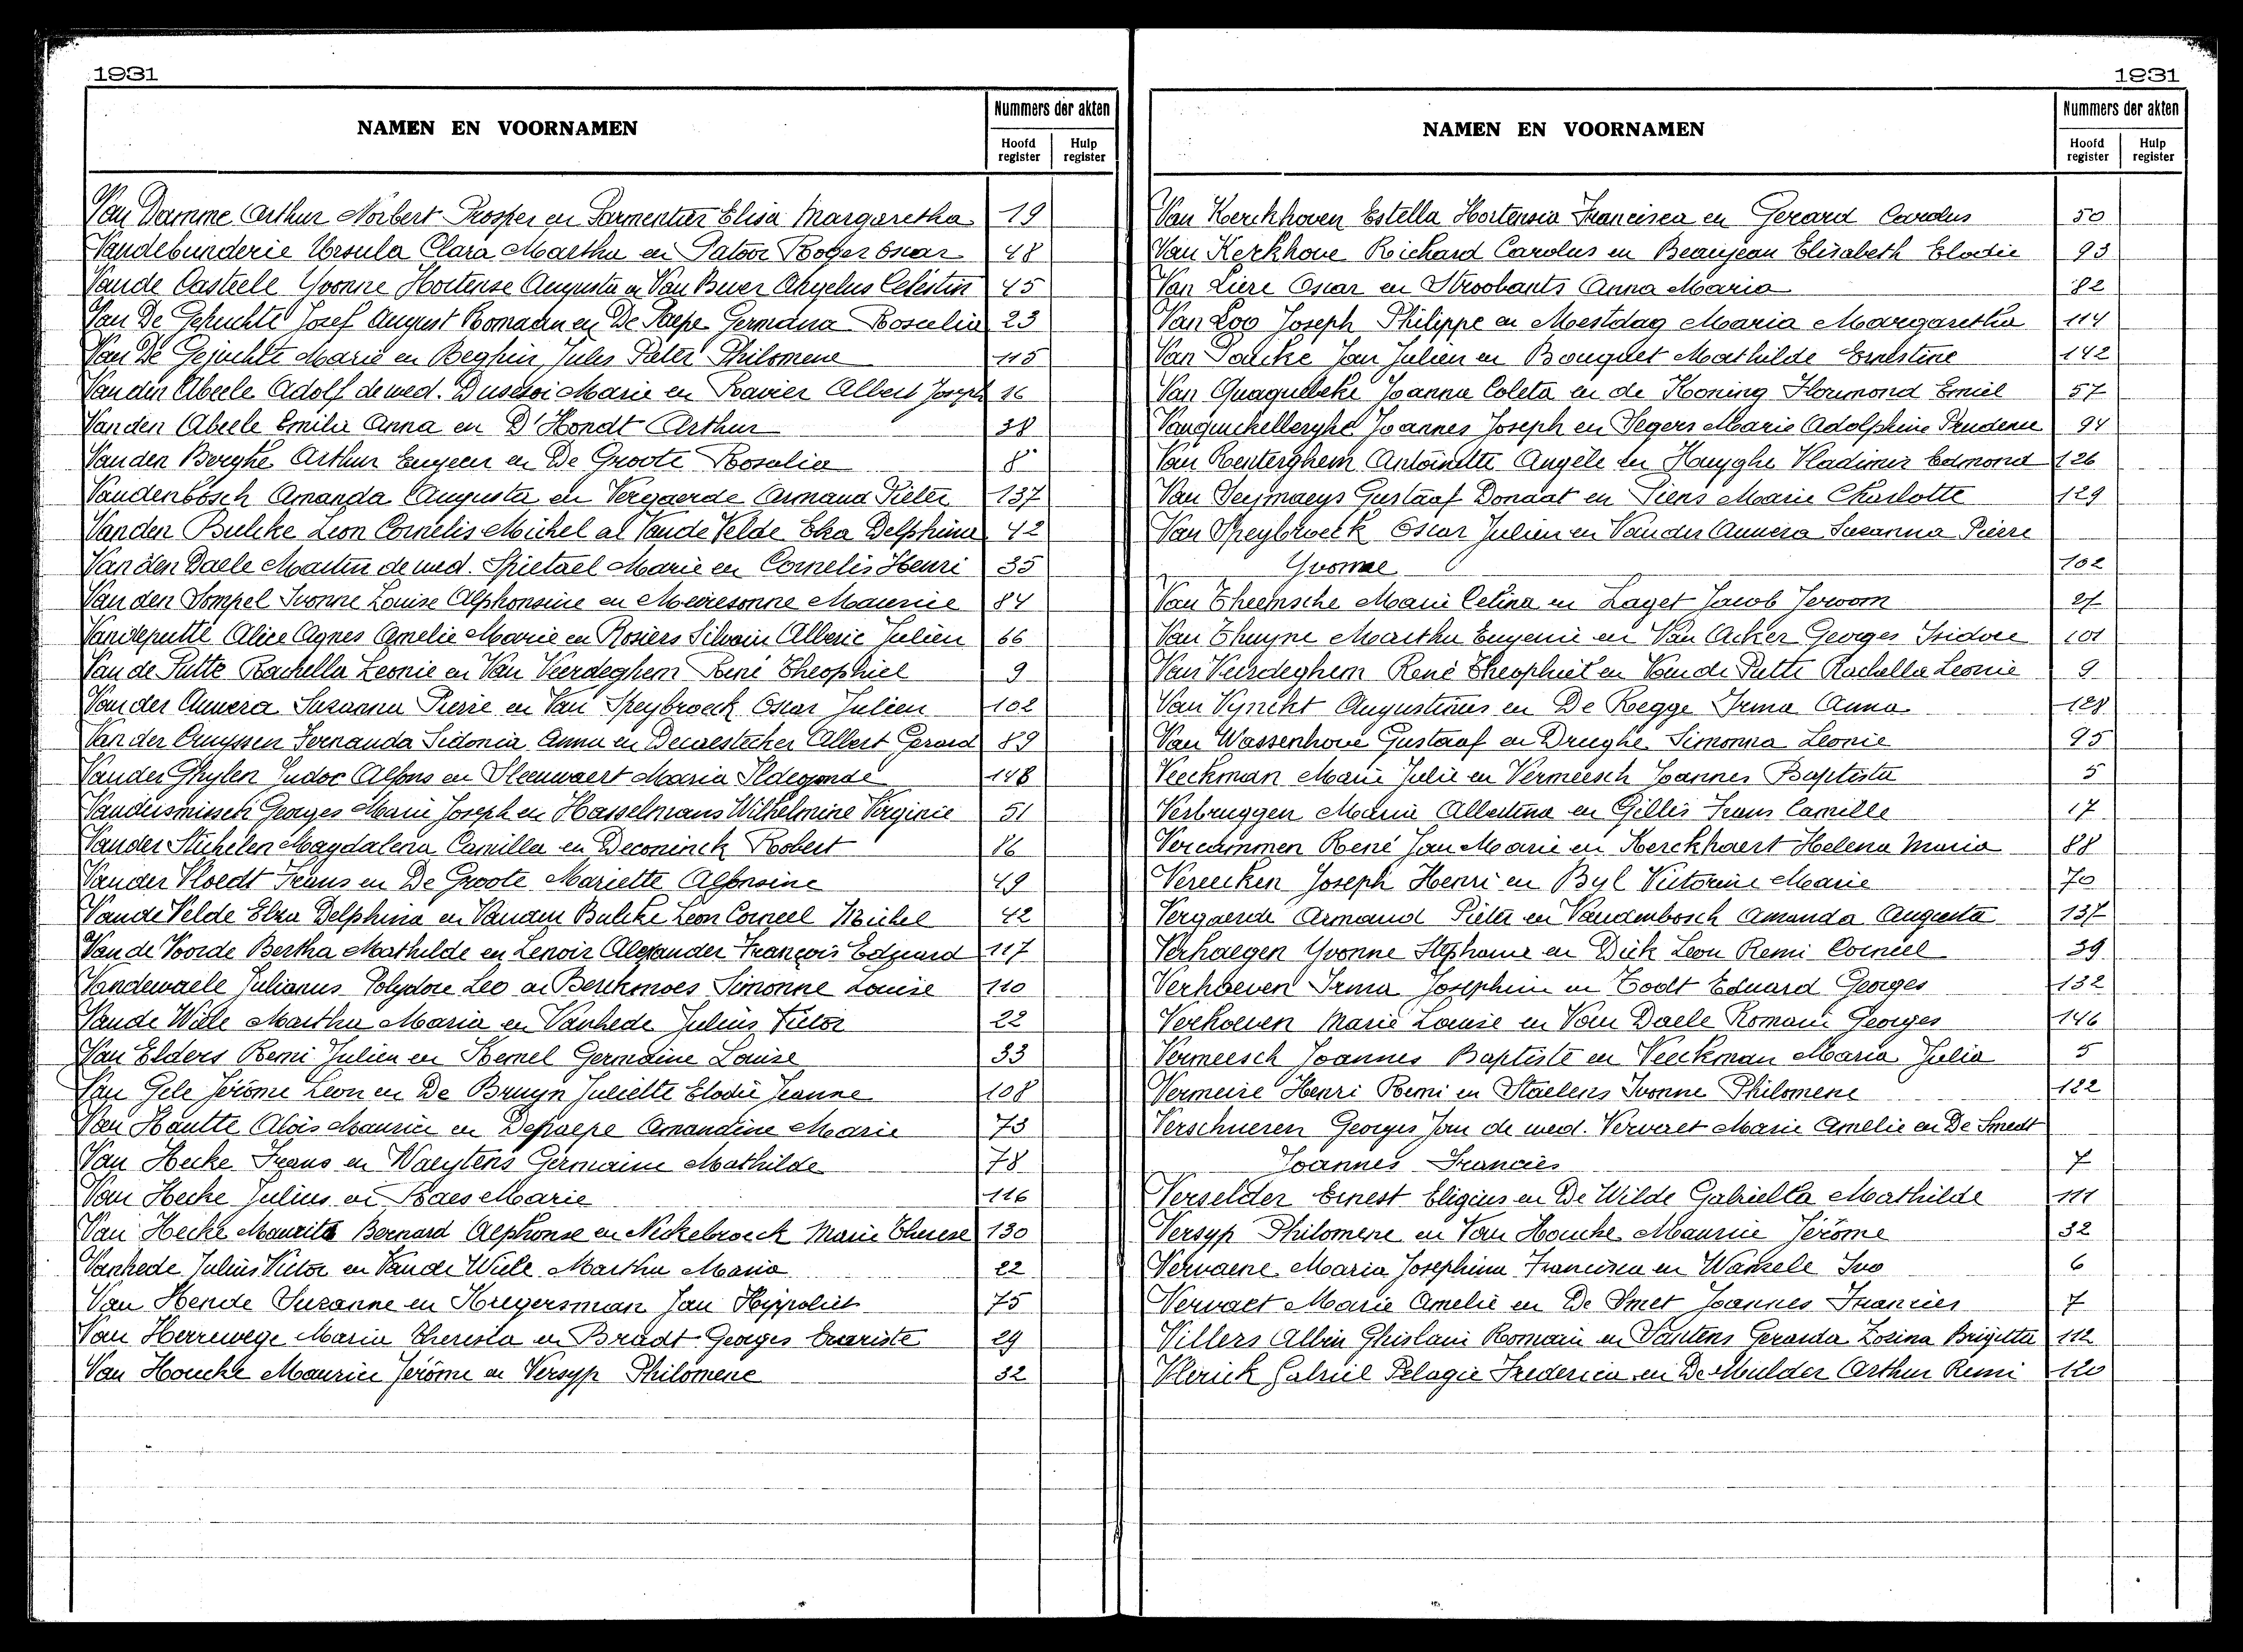 1931
NAMEN EN VOORNAMEN
Nummers der akten
Hoofd register
Hulp register
Van Damme Arthur Norbert Prosper en Parmentier Elisa Margaretha 19
Vandebunderie Ursula Clara Martha en Patoor Roger Oscar 48
Vande Casteele Yvonne Hortense Augusta en Van Buer Angelus Celestin 45
Van De Gehuchte Josef August Romaan en De Paepe Germana Rosalia 23
Van De Gejuchte Marie en Beghin Jules Pieter Philomene 115
Van den Abeele Adolf de wed. Marie en Ravier Albert Joseph 16
Van den Abeele Emilie Anna en D'Hondt Arthur 38
Van den Berghe Arthur Eugeen en De Groote Rosalia 8
Vandenbosch Amanda Augusta en Vergaerde Armand Pieter 137
Van den Bulcke Leon Cornelis Michel al Vande Velde Elza Delphina 42
Van den Daele Martin de wed. Spietael Marie en Cornelis Henri 35
Van den Sompel Ivonne Louise Alphonsine en Meiresonne Maurice 84
Vandeputte Alice Agnes Amelie Marie en Rosiers Silvain Alberic Julien 66
Van de Putte Rachella Leonie en Van Veerdeghem René Theophiel 9
Van der Auwera Suzanna Pierre en Van Speybroeck Oscar Julien 102
Van der Cruyssen Fernanda Sidonia Anna en Decaestecker Albert Gerard 89
Van der Ghylen Judoc Alfons en Sleeuwaert Maria Ildegonde 148
Vandersmissen Georges Marie Joseph en Hasselmans Wilhelmine Virginie 51
Van der Stichelen Magdalena Camilla en Deconinck Robert 86
Van der Vloedt Frans en De Groote Mariette Alfonsine 49
Vande Velde Elza Delphina en Vanden Bulcke Leon Corneel Michel 42
Van de Voorde Bertha Mathilde en Lenoir Alexander François Eduard 117
Vandewaele Julianus Polydore Leo en Berckmoes Simonne Louise 110
Vande Wiele Martha Maria en Vanhede Julius Victor 22
Van Elders Remi Julien en Kemel Germaine Louise 33
Van Gele Jérôme Leon en De Bruyn Juliette Elodie Jeanne 108
Van Houtte Aloïs Maurice en Depaepe Amandine Marie 73
Van Hecke Frans en Waeytens Germaine Mathilde 78
Van Hecke Julius en Baes Marie 116
Van Hecke Maurits Bernard Alphonse en Neckebroeck Marie Therese 130
Vanhede Julius Victor en Vande Wiele Martha Maria 22
Van Hende Suzanne en Kregersman Jan Hyppoliet 75
Van Herrewege Maria Theresia en Bradt Georges Evariste 29
Van Houcke Maurice Jérôme en Versyp Philomene 32
1931
NAMEN EN VOORNAMEN
Nummers der akten
Hoofd register
Hulp register
Van Kerckhoven Estella Hortensia Francisca en Gerard Carolus 50
Van Kerkhove Richard Carolus en Beaujean Elisabeth Elodie 93
Van Liere Oscar en Stroobants Anna Maria 82
Van Loo Joseph Philippe en Mestdag Maria Margaretha 114
Van Parcke Jan Julien en Bouquet Mathilde Ernestine 142
Van Quaquebeke Joanna Coleta en de Koning Florimond Emiel 57
Vanquickelberghe Joannes Joseph en Segers Marie Adolphine Prudence 94
Van Renterghem Antoinette Angèle en Huyghe Vladimir Edmond 126
Van Seymaeys Gustaaf Donaat en Siens Marie Charlotte 129
Van Speybroeck Oscar Julien en Van der Auwera Suzanna Pierre
Yvonne 102
Van Theemsche Marie Celina en Laget Jacob Jeroom 27
Van Thuyne Martha Eugenie en Van Acker Georges Isidore 101
Van Veerdeghem René Theophiel en Van de Putte Rachella Leonie 9
Van Vynckt Augustinus en De Regge Irma Anna 128
Van Wassenhove Gustaaf en Drieghe Simonna Leonie 95
Veeckman Marie Julie en Vermeersch Joannes Baptista 5
Verbruggen Maria Albertina en Gillis Frans Camille 17
Vercammen René Jan Marie en Kerckhaert Helena Maria 88
Vereecken Joseph Henri en Byl Victorine Marie 70
Vergaerde Armand Pieter en Vandenbosch Amanda Augusta 137
Verhaegen Yvonne Stephanie en Dick Leon Remi Corneel 39
Verhoeven Irma Josephine en Todt Eduard Georges 132
Verhoeven Marie Louise en Van Daele Romain Georges 146
Vermeesch Joannes Baptiste en Veeckman Maria Julia 5
Vermeire Henri Remi en Staelens Ivonne Philomene 122
Verschueren Georges Jan de wed. Ververet Marie Amelie en De Smedt
Joannes Francies 7
Verselder Ernest Eligius en De Wilde Gabriella Mathilde 111
Versyp Philomene en Van Houcke Maurice Jérôme 32
Vervaene Maria Josephina Francisca en Wamele Ivo 6
Vervaet Marie Amelie en De Smet Joannes Francies 7
Villers Albin Ghislain Romain en Santens Gerarda Zosina Brigitta 112
Vlerick Gabriel Pelagie Frederica en De Mulder Arthur Remi 120